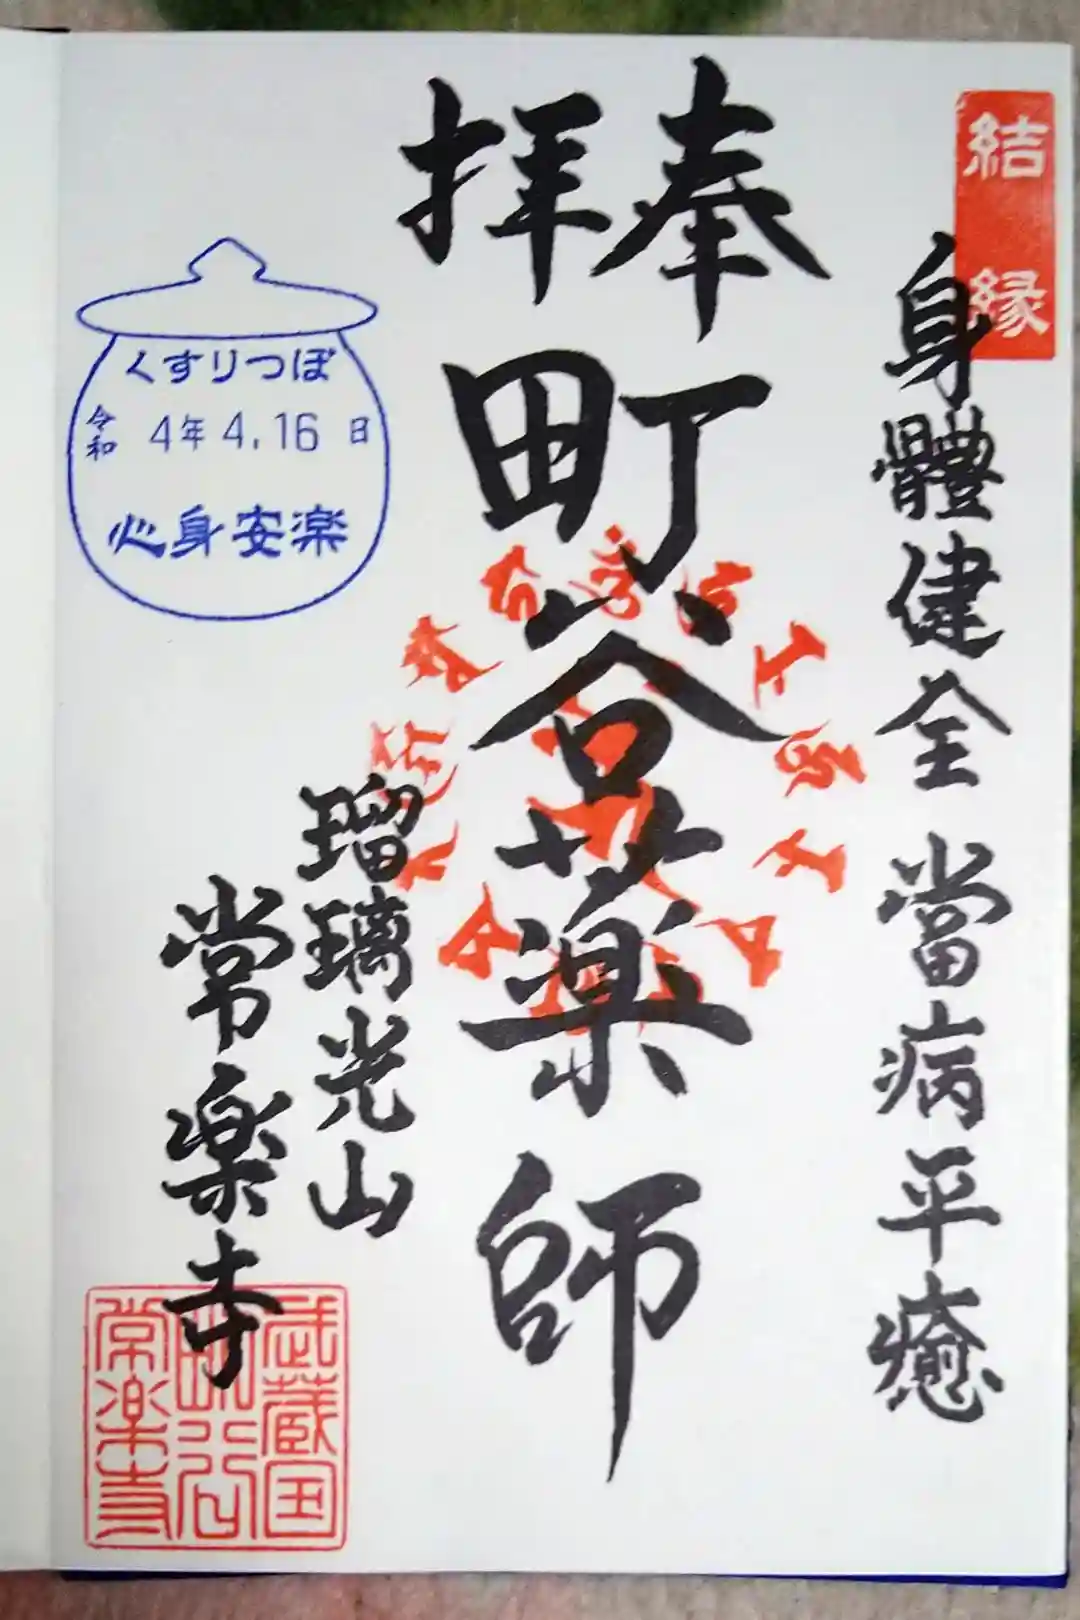 結縁
身體健全 當病平癒
奉拝
町谷薬師
瑠璃光山
常楽寺
くすりつぼ
令和 4年4.16日
心身安楽
武蔵国
町谷
常楽寺